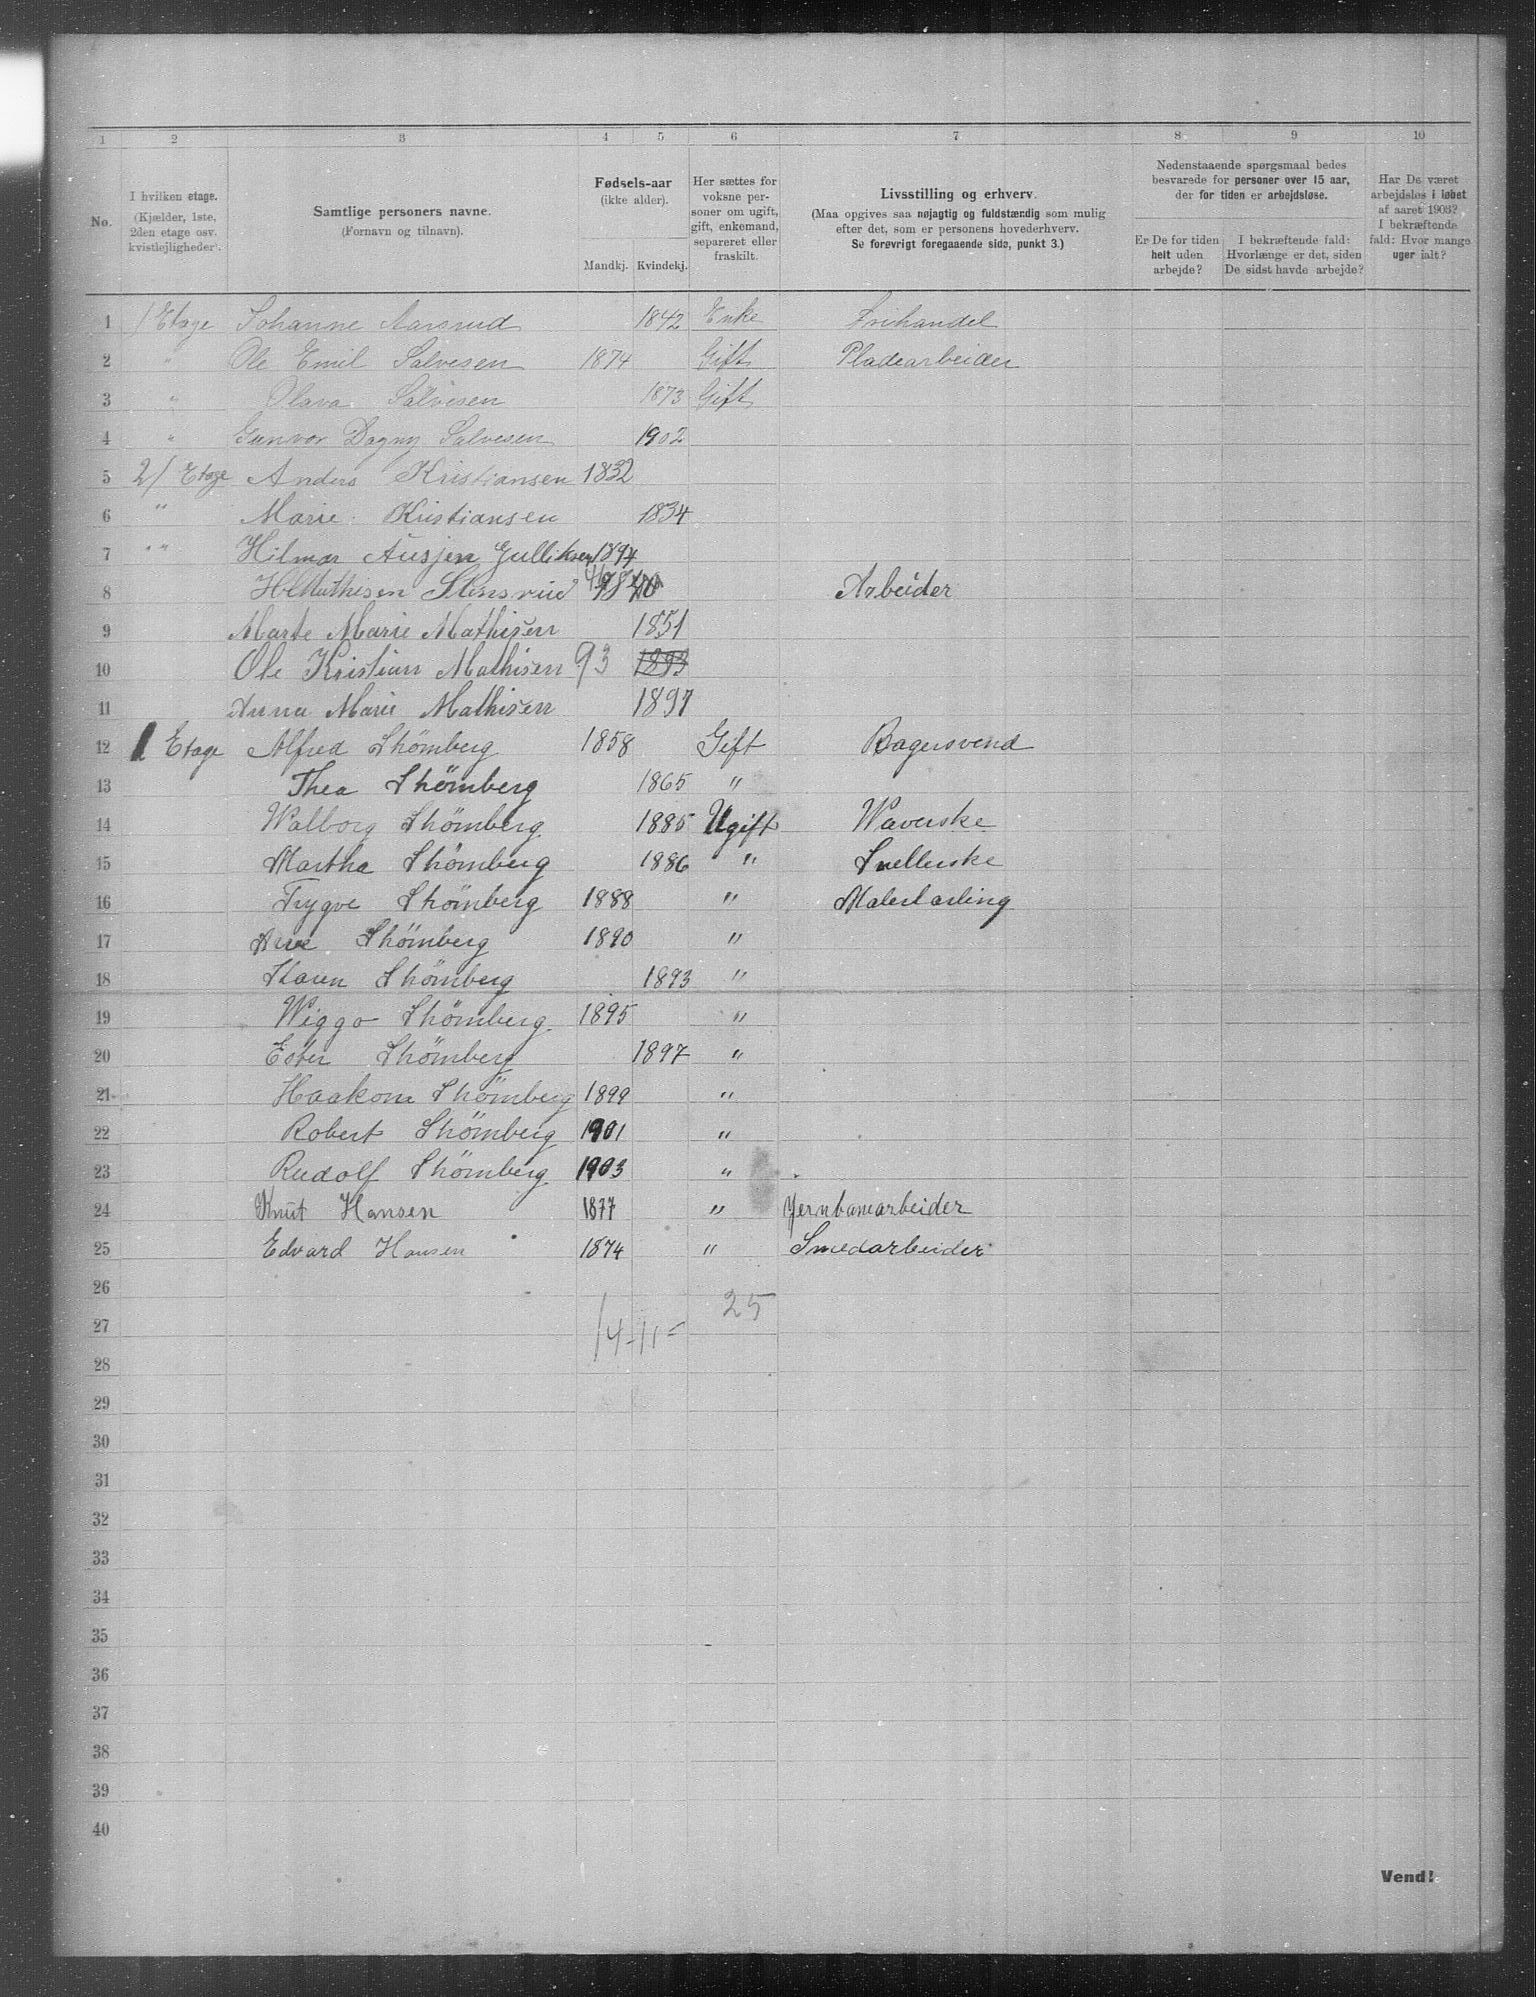 1 2 3 4 5 6 7 8 9 10
No.
I hvilken etage.
(Kjælder, 1ste,
2den etage osv.
kvistlejligheder).
Samtlige personers navne.
(Fornavn og tilnavn).
Fødsels-aar
(ikke alder).
Mandkj. Kvindekj.
Her sættes for
voksne per-
soner om ugift,
gift, enkemand,
separeret eller
fraskilt.
Livsstilling og erhverv.
(Maa opgives saa nøjagtig og fuldstændig som mulig
efter det, som er personens hovederhverv.
Se forøvrigt foregaaende side, punkt 3.)
Nedenstaaende spørgsmaal bedes
besvarede for personer over 15 aar,
der for tiden er arbejdsløse.
Er De for tiden
helt uden
arbejde?
I bekræftende fald:
Hvorlænge er det, siden
De sidst havde arbejde?
Har De været
arbejdsløs i løbet
af aaret 1903?
I bekræftende
fald: Hvor mange
uger ialt?
1 1 Etage Johanne Aarsrud 1842 Enke Frihandel
2 " Ole Emil Salvesen 1874 Gift Pladearbeider
3 " Olava Salvesen 1873 Gift
4 " Gunvor Dagny Salvesen 1902
5 2/ Etage Anders Kristiansen 1832
6 " Marie Kristiansen 1834
7 " " Hilmar Gulliksen 1894
8 Mathisen Stensrud Arbeider
9 Marte Marie Mathisen 1851
10 Ole Kristian Mathisen 93 1893
11 Anna Marie Mathisen 1897
12 1 Etage Alfred Shömberg 1858 Gift Bagersvend
13 Thea Shömberg 1865 "
14 Walborg Shömberg 1885 Ugift Waverske
15 Martha Shömberg 1886 " Snellerske
16 Trygve Shömberg 1888 " Malerlærling
17 Arne Shömberg 1890 "
18 Karen Shömberg 1893 "
19 Wiggo Shömberg. 1895 "
20 Ester Shömberg 1897 "
21 Haakon Shömberg 1899 "
22 Robert Shömberg 1901 "
23 Rudolf Shömberg 1903 "
24 Knut Hansen 1877 " Jernbanearbeider
25 Edvard Hansen 1874 " Smedarbeider
26
27 14-11= 25
28
29
30
31
32
33
34
35
36
37
38
39
40
Vend!